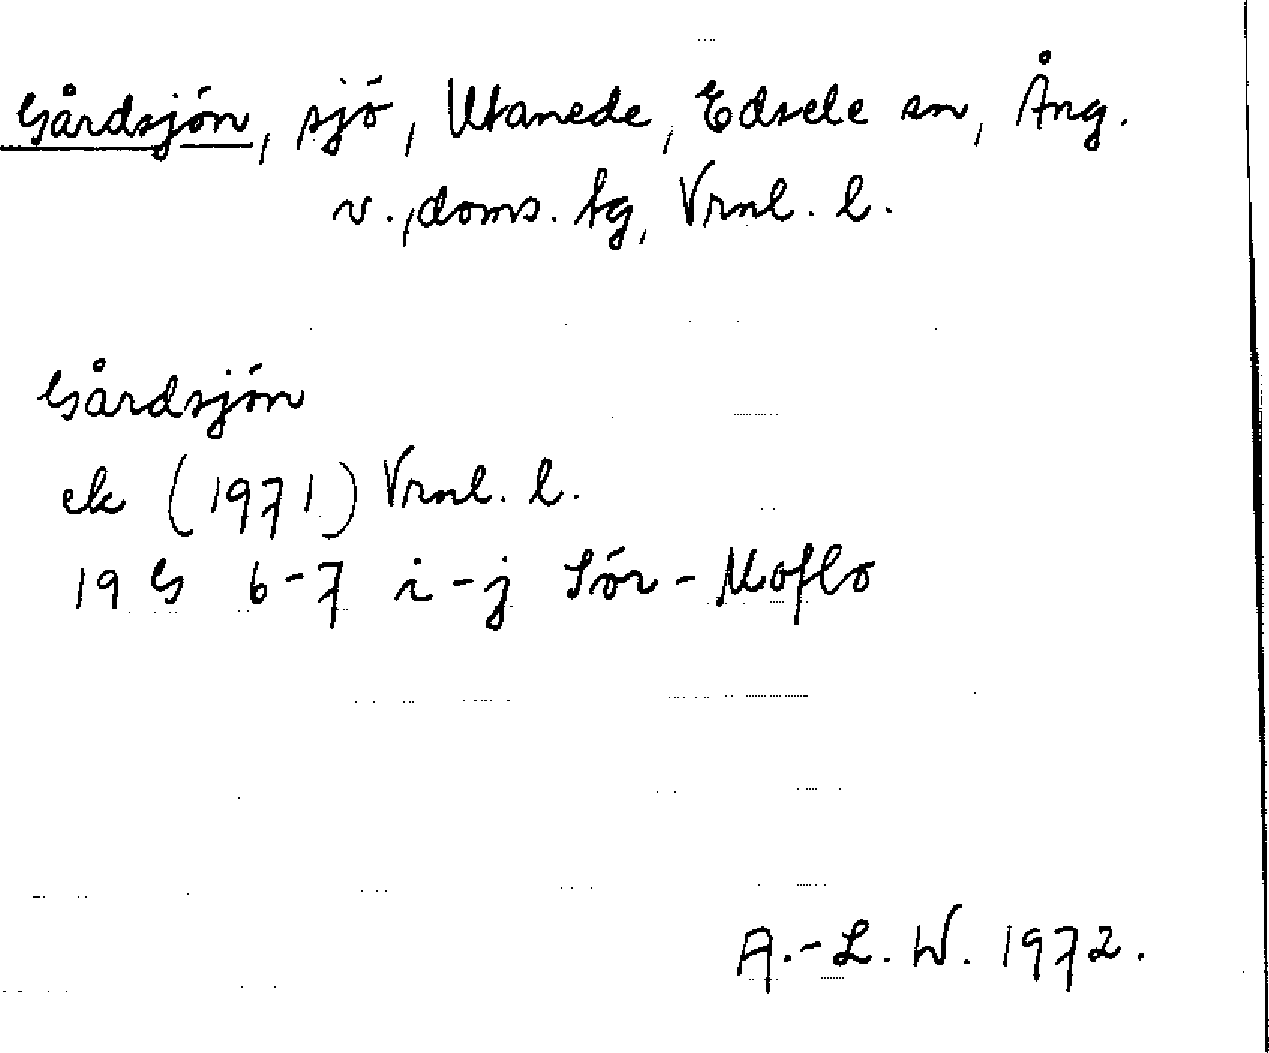 Gårdsjön, sjö, Utanede, Edsele sn, Ång.
v., doms. tg, Vrnl. l.
Gårdsjön
ek (1971) Vrnl. l.
19 G 6-7 i-j Sör-Moflo
A.-L. W. 1972.